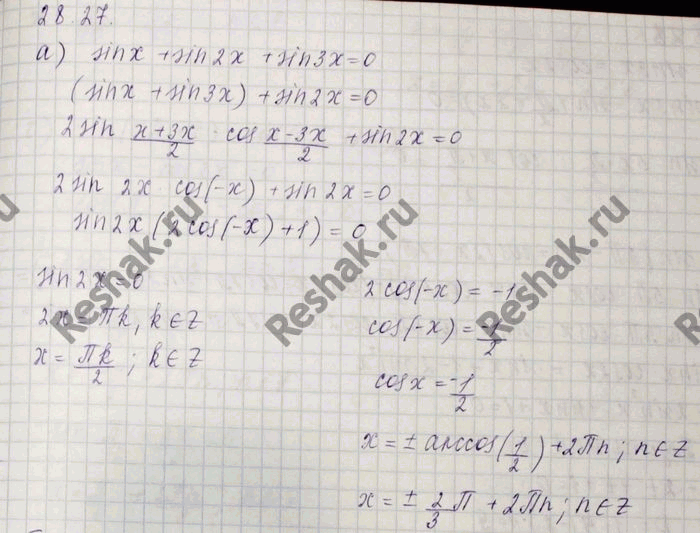 28.27.
а) sinx + sin2x + sin3x = 0
(sinx + sin3x) + sin2x = 0
2sin (x+3x)/2 · cos (x-3x)/2 + sin2x = 0
2sin 2x · cos(-x) + sin2x = 0
sin2x (2cos(-x) + 1) = 0
sin2x = 0
2x = πk, k∈Z
x = πk/2 ; k∈Z
2cos(-x) = -1
cos(-x) = -1/2
cosx = -1/2
x = ± arccos(1/2) + 2πn ; n∈Z
x = ± 2/3 π + 2πn ; n∈Z
Reshak.ru
Reshak.ru
Reshak.ru